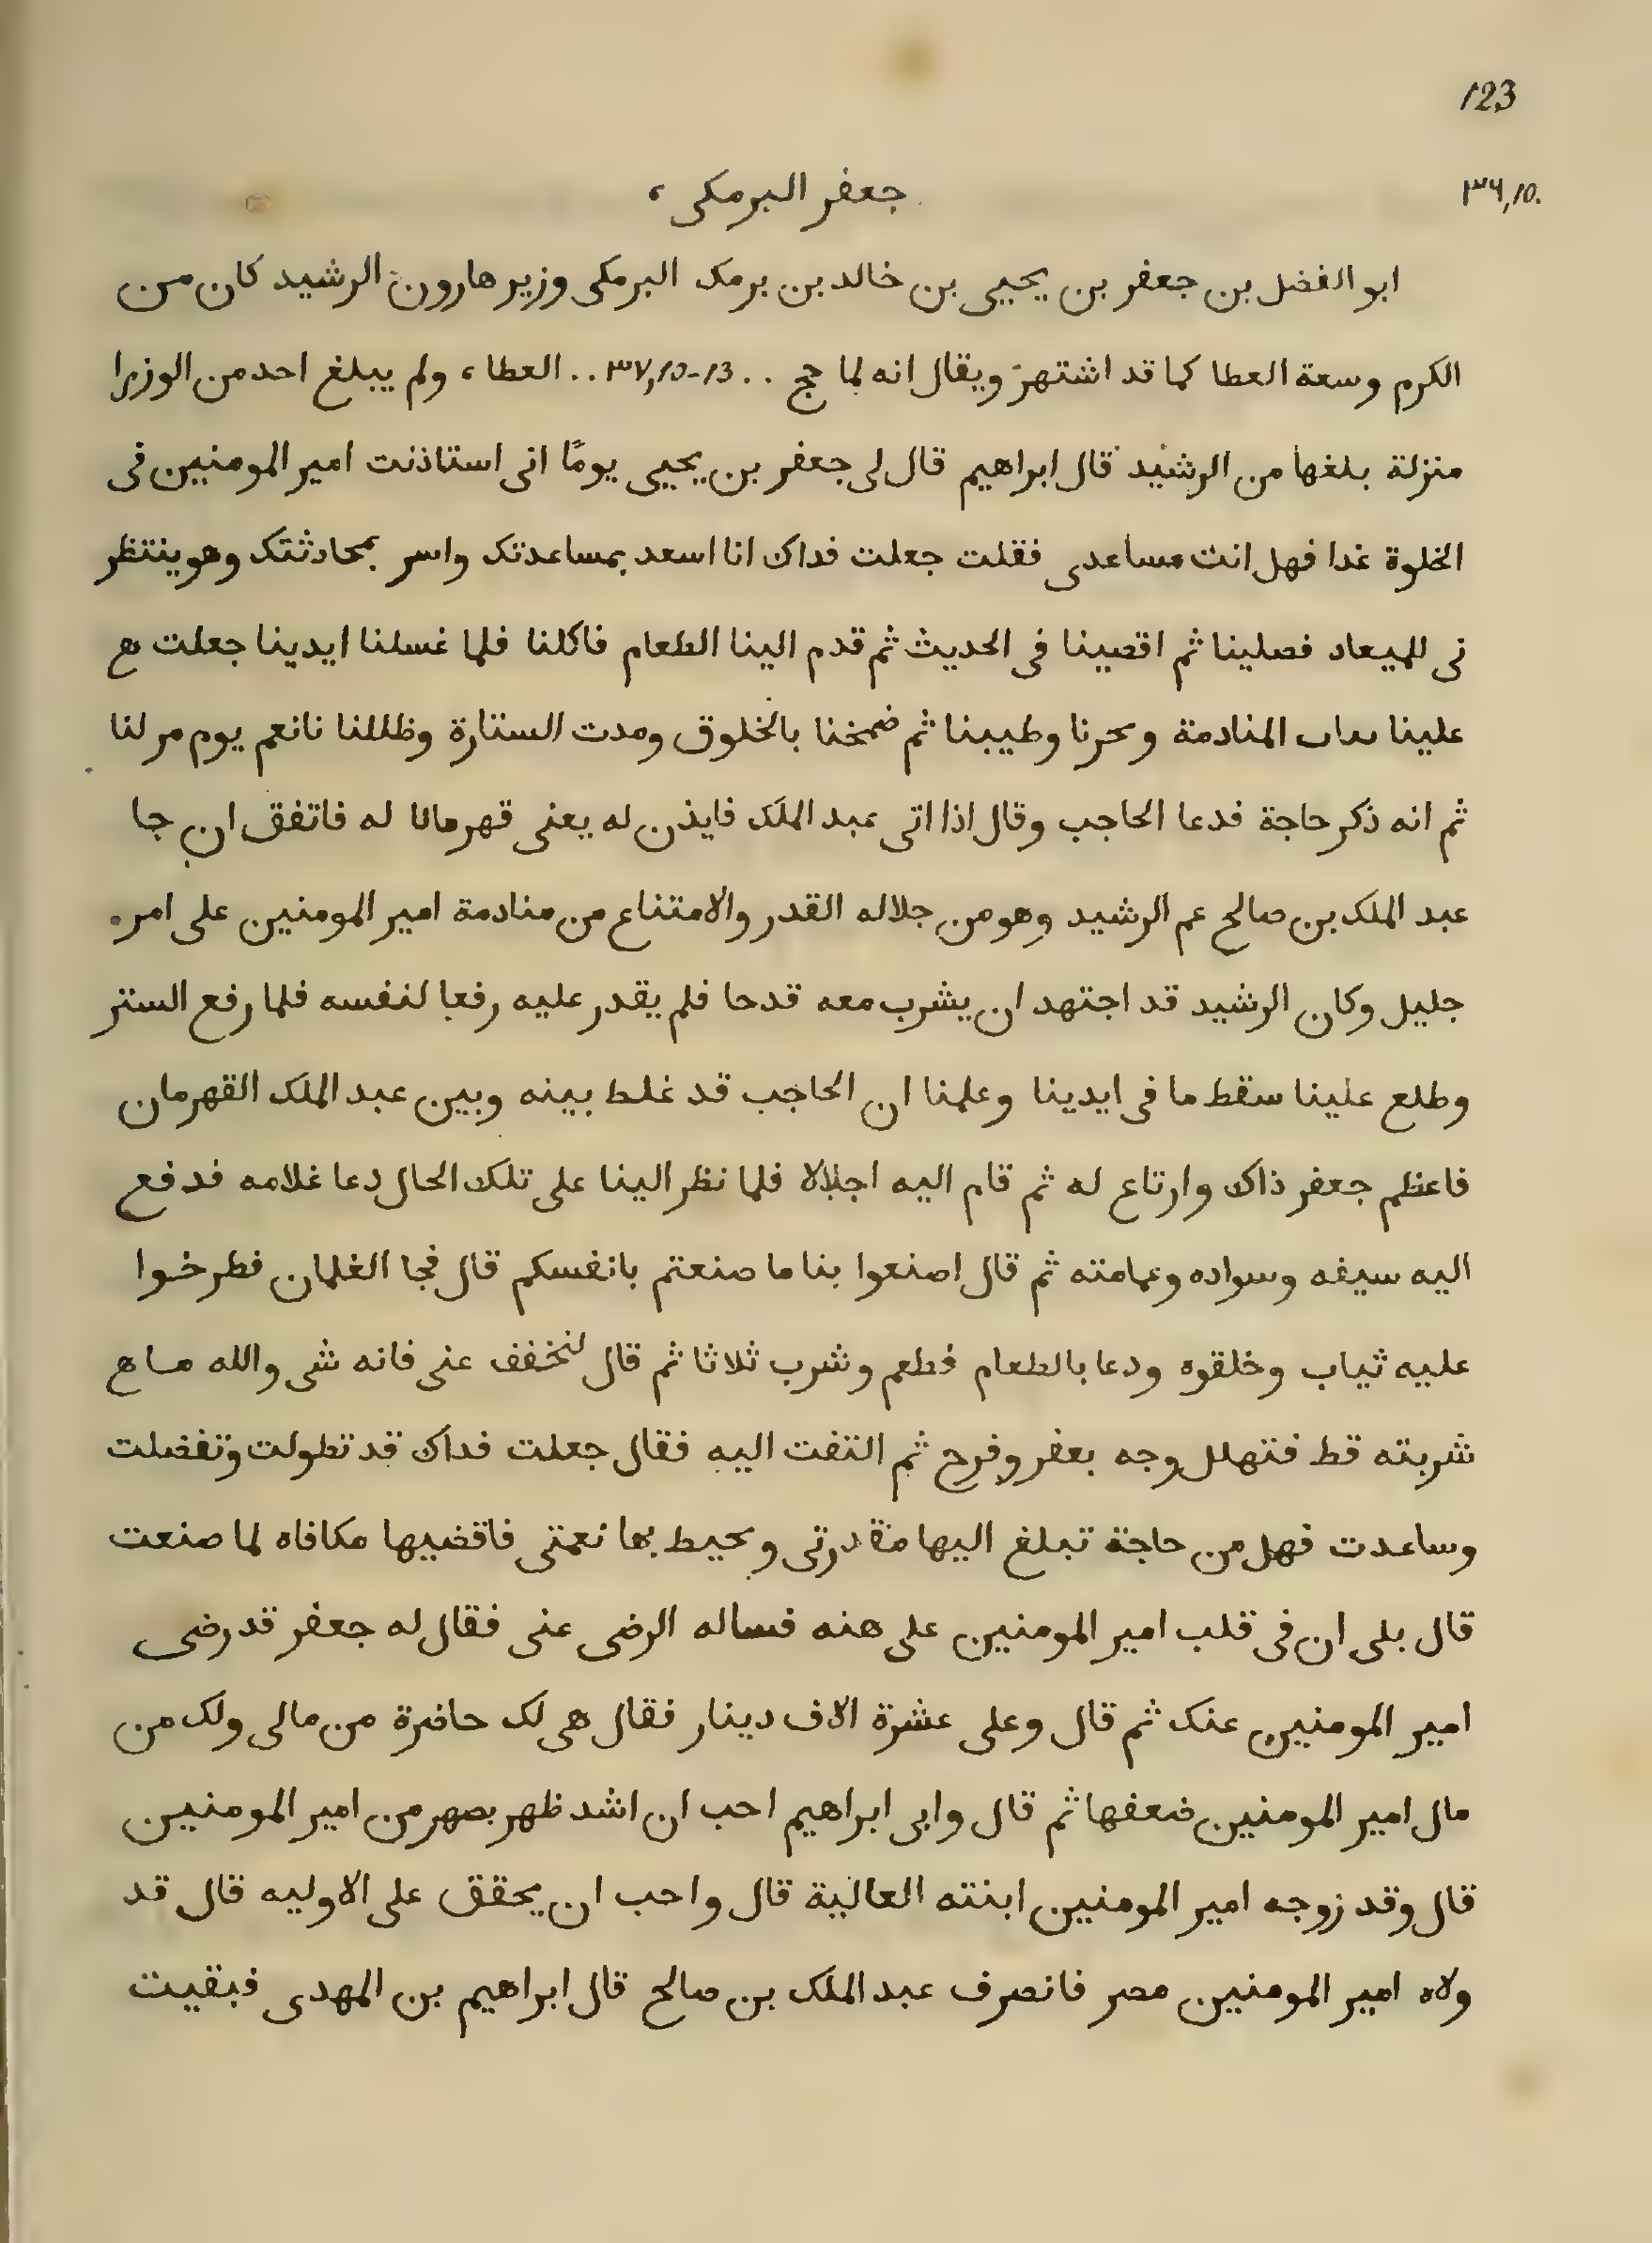 123
٣٦,١٥.
جعفر البرمكى ،
ابو الفضل بن جعفر بن يحيى بن خالد بن برمك البرمكى وزير هارون الرشيد كان من
الكرم وسعة العطا كما قد اشتهر ويقال انه لما حج .. ٣٧,١٥-١٣ .. العطا ، ولم يبلغ احد من الوزرا
منزلة بلغها من الرشيد قال ابراهيم قال لى جعفر بن يحيى يومًا انى استاذنت امير المومنين فى
الخلوة غدا فهل انت مساعدى فقلت جعلت فداك انا اسعد بمساعدتك واسر بمحادثتك وهو ينتظر
نى للميعاد فصلينا ثم اقصينا فى الحديث ثم قدم الينا الطعام فاكلنا فلما غسلنا ايدينا جعلت
علينا ىىاب المنادمة وىحرنا وطيبنا ثم ضمخنا بالخلوق ومدت الستارة وظللنا نانعم يوم مر لنا
ثم انه ذكر حاجة فدعا الحاجب وقال اذا اتى عبد الملك فايذن له يعنى قهرمانا له فاتفق ان جا
عبد الملك بن صالح عم الرشيد وهو من جلاله القدر والامتناع من منادمة امير المومنين على امر
جليل وكان الرشيد قد اجتهد ان يشرب معه قدحا فلم يقدر عليه رفعا لنفسه فلما رفع الستر
وطلع علينا سقط ما فى ايدينا وعلمنا ان الحاجب قد غلط بينه وبين عبد الملك القهرمان
فاعظم جعفر ذاك وارتاع له ثم قام اليه اجلالا فلما نظر الينا على تلك الحال دعا غلامه فدفع
اليه سيفه وسواده وعمامته ثم قال اصنعوا بنا ما صنعتم بانفسكم قال فجا الغلمان فطرخوا
عليه ثياب وخلقوه ودعا بالطعام فطعم وشرب ثلاثا ثم قال لنخفف عنى فانه شى والله ما
شربته قط فتهلل وجه بعفر وفرح ثم التفت اليه فقال جعلت فداك قد تطولت وتفضلت
وساعدت فهل من حاجة تبلغ اليها مقدرتى وىحيط بها نعمتى فاقضيها مكافاه لما صنعت
قال بلى ان فى قلب امير المومنين على هنه فساله الرضى عنى فقال له جعفر قد رضى
امير المومنين عنك ثم قال وعلى عشرة الاف دينار فقال هى لك حاضرة من مالى ولك من
مال امير المومنين ضعفها ثم قال وابى ابراهيم احب ان اشد ظهر بصهر من امير المومنين
قال وقد زوجه امير المومنين ابنته العالية قال واحب ان يحقق على الاوليه قال قد
ولاه امير المومنين مصر فانصرف عبد الملك بن صالح قال ابراهيم بن المهدى فبقيت